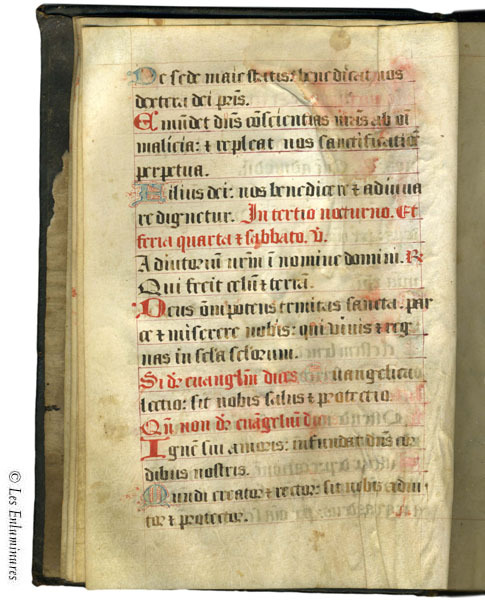 De sede maiestatis: benedicat nos
dextera dei pr̄is.
Emūdet dn̄s cōscientias nr̄as ab oī
malicia: ⁊ repleat nos sanctificatiōe
perpetua.
Filius dei: nos benedicere ⁊ adiuua
re dignetur. In tertio nocturno. Et
feria quarta ⁊ sabbato. v̄.
Adiutoriū nr̄m ī nomine domini. R̄
Qui fecit celū ⁊ terrā.
Deus om̄ipotens trinitas sancta: par
ce ⁊ miserere nobis: qui viuis ⁊ reg
nas in sc̄la sc̄lorum.
Si de euangliū dices. Euangelica
lectio: sit nobis salus ⁊ protectio.
Qn̄ non de euāgeliū
Ignē sui amoris: infundat dn̄s cor
dibus nostris.
Mundi creator ⁊ rector: sit nobis adiu
tor ⁊ protector.
© Les Enluminures